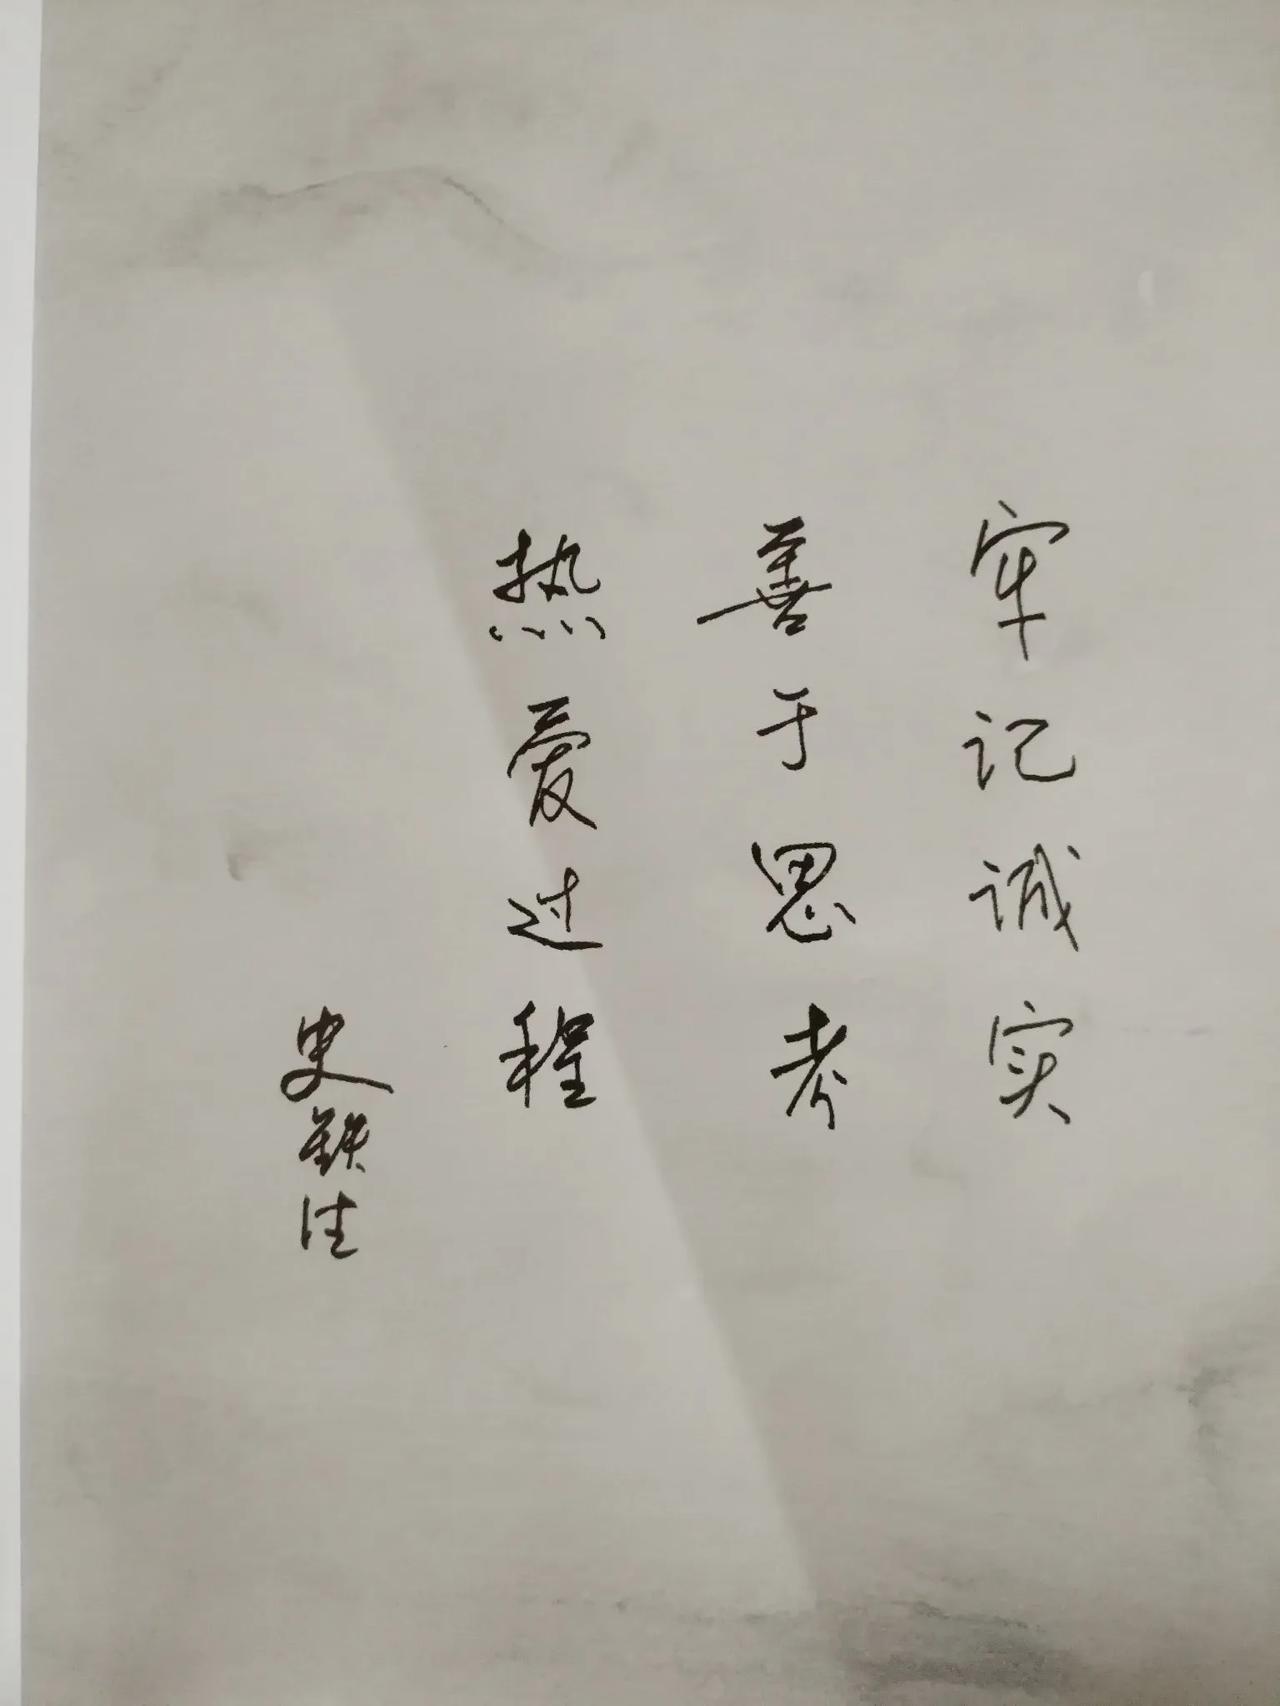 牢记诚实
善于思考
热爱过程
史铁生